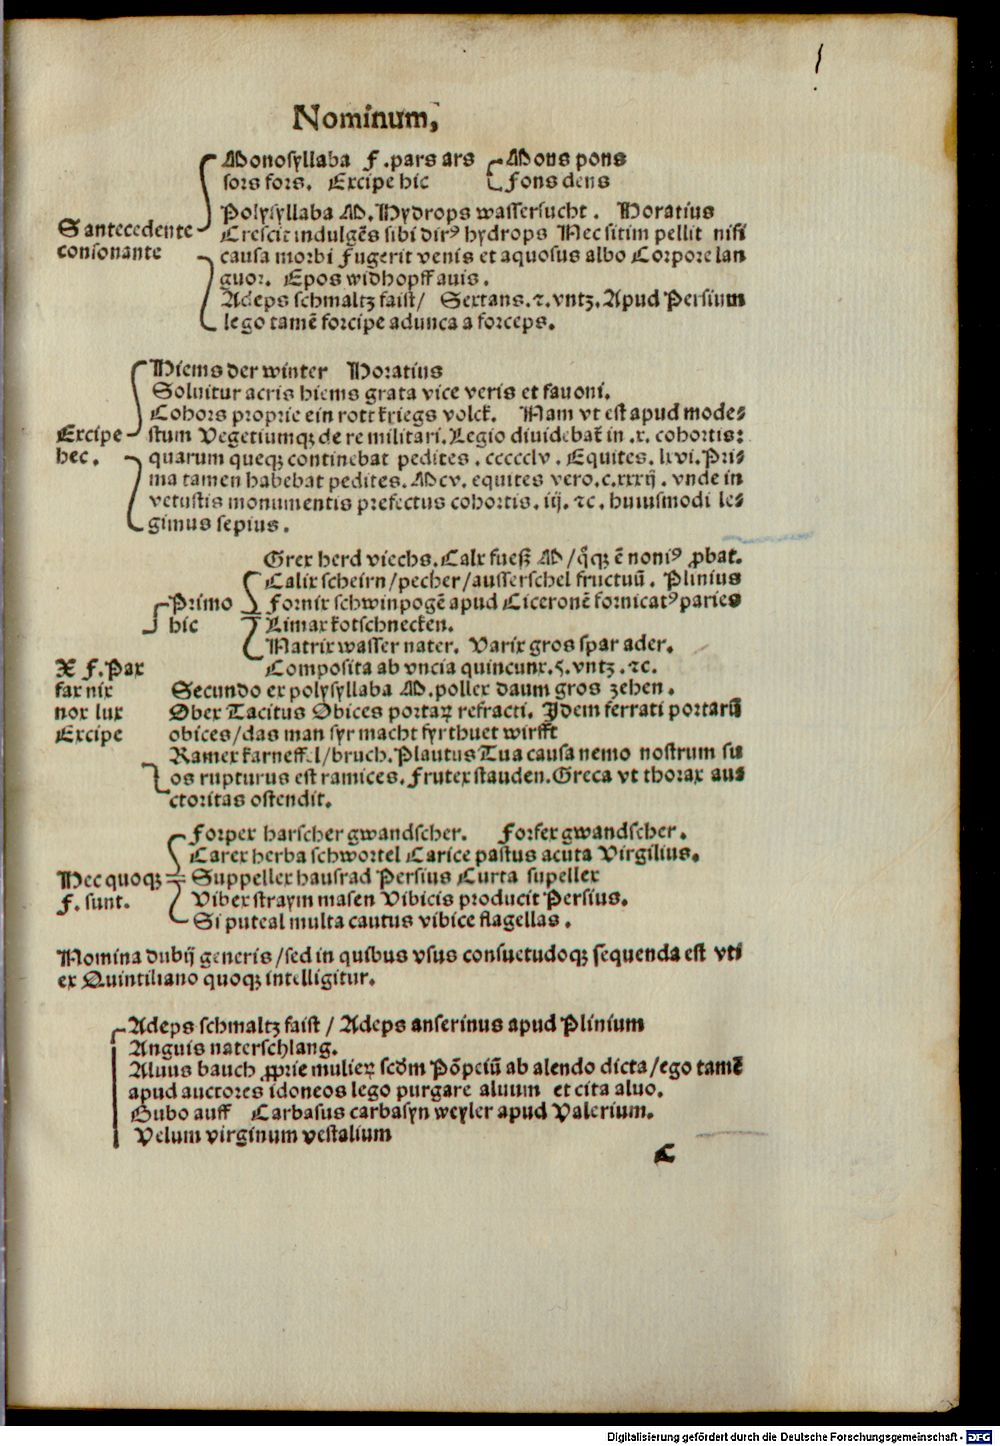 Nominum,
Monosyllaba F. pars ars Mons pons
sors fors. Excipe hic Fons dens
S antecedente
consonante
Polysyllaba M. Hydrops wassersucht. Horatius
Crescit indulgēs sibi dirꝰ hydrops Nec sitim pellit nisi
causa morbi Fugerit venis et aquosus albo Corpore lan
guor. Epos widhopff auis.
Adeps schmaltz faist/ Sextans. ⁊. vntz. Apud Persium
lego tamē forcipe adunca a forceps.
Excipe
hec.
Hiems der winter Horatius
Soluitur acris hiems grata vice veris et fauoni.
Cohors proprie ein rott kriegs volck. Nam vt est apud mode⸗
stum Vegetiumqꝫ de re militari. Legio diuidebat̄ in .x. cohortis:
quarum queqꝫ continebat pedites. ccccclv. Equites. lxvi. Pri⸗
ma tamen habebat pedites. Mcv. equites vero. c.xxxij. vnde in
vetustis monumentis prefectus cohortis. iij. ⁊c. huiusmodi le⸗
gimus sepius.
X F. Pax
fax nix
nox lux
Excipe
Primo
hic
Grex herd viechs. Calx fueß M /qͥqꝫ ē noniꝰ ꝓbat.
Calix scheirn/pecher/ausserschel fructuū. Plinius
Fornix schwinpogē apud Ciceronē fornicatꝰ paries
Limax kotschnecken.
Matrix wasser nater. Varix gros spar ader.
Composita ab vncia quincunx. 5. vntz. ⁊c.
Secundo ex polysyllaba M. pollex daum gros zehen.
Obex Tacitus Obices portaꝝ refracti. Idem ferrati portarū
obices/das man fyr macht fyrthuet wirfft
Ramex karneffel/bruch. Plautus Tua causa nemo nostrum su
os rupturus est ramices. Frutex stauden. Greca vt thorax auc
ctoritas ostendit.
Hec quoqꝫ
F. sunt.
Forpex harscher gwandscher. Forfex gwandscher.
Carex herba schwortel Carice pastus acuta Virgilius.
Suppellex hausrad Persius Curta supellex
Vibex straym masen Vibicis producit Persius.
Si puteal multa cautus vibice flagellas.
Nomina dubij generis/sed in quibus vsus consuetudoqꝫ sequenda est vti
ex Quintiliano quoqꝫ intelligitur.
Adeps schmaltz faist / Adeps anserinus apud Plinium
Anguis naterschlang.
Aluus bauch ꝓprie mulieꝝ scd̄m Pōpeiū ab alendo dicta/ego tamē
apud auctores idoneos lego purgare aluum et cita aluo.
Bubo auff Carbasus carbasyn weyler apud Valerium.
Velum virginum vestalium
C
Digitalisierung gefördert durch die Deutsche Forschungsgemeinschaft - DFG